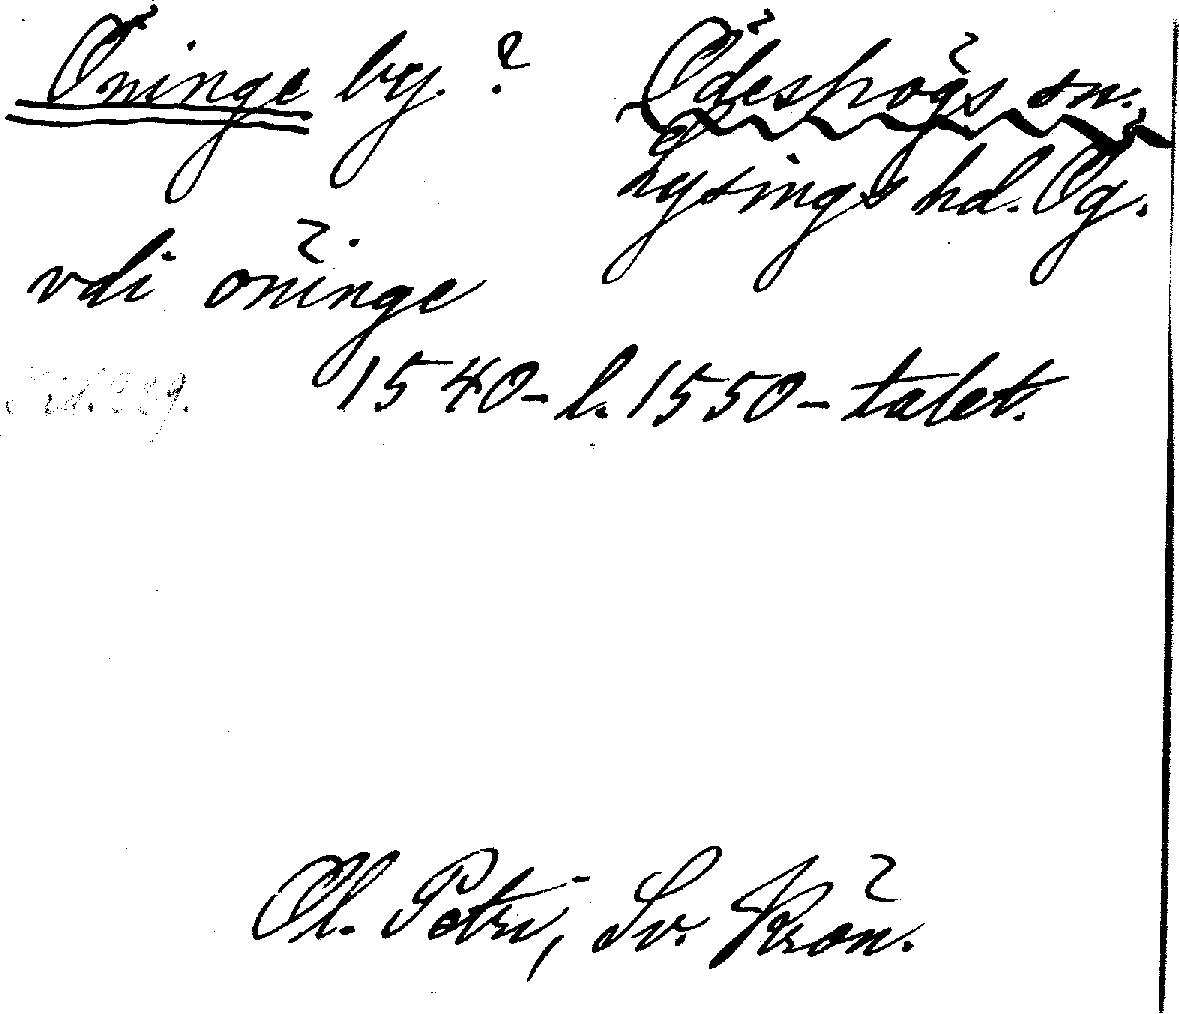 Öninge by. ? Ödeshögs sn.,
Lysings hd. Ög.
vdi öninge
1540- l. 1550-talet.
Ol. Petri, Sv. Krön.